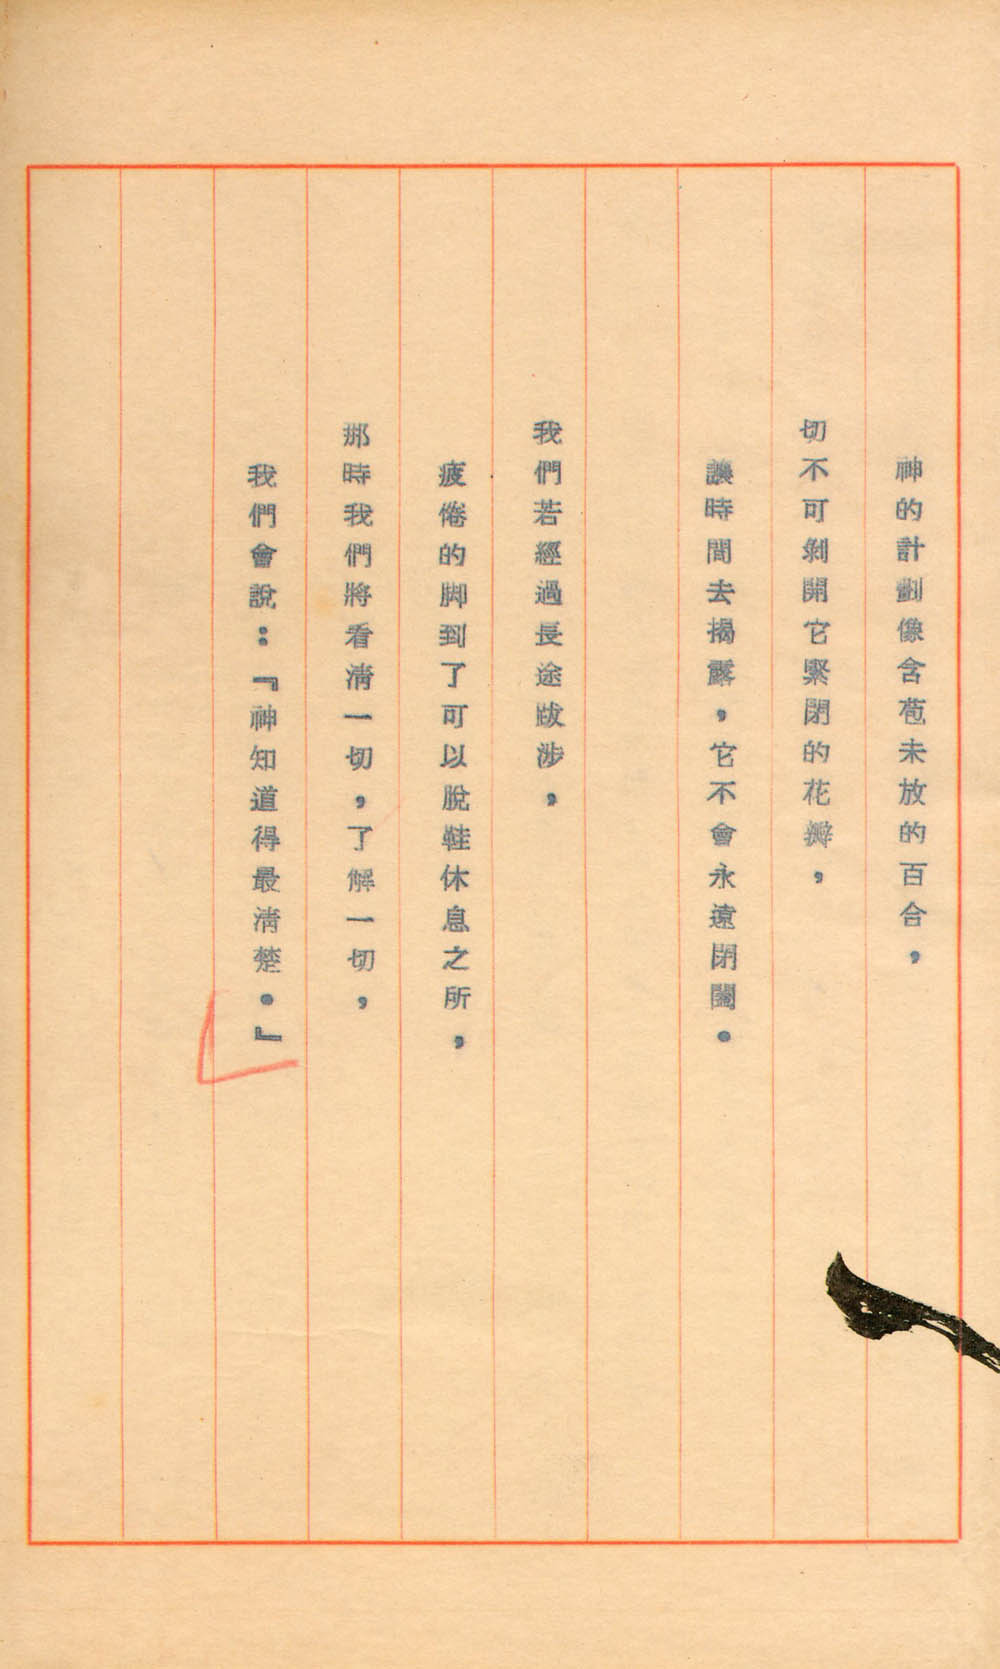 神的計劃像含苞未放的百合，
切不可剝開它緊閉的花瓣，
讓時間去揭露，它不會永遠閉闔。
我們若經過長途跋涉，
疲倦的脚到了可以脫鞋休息之所，
那時我們將看淸一切，了解一切，
我們會說：『神知道得最淸楚。』